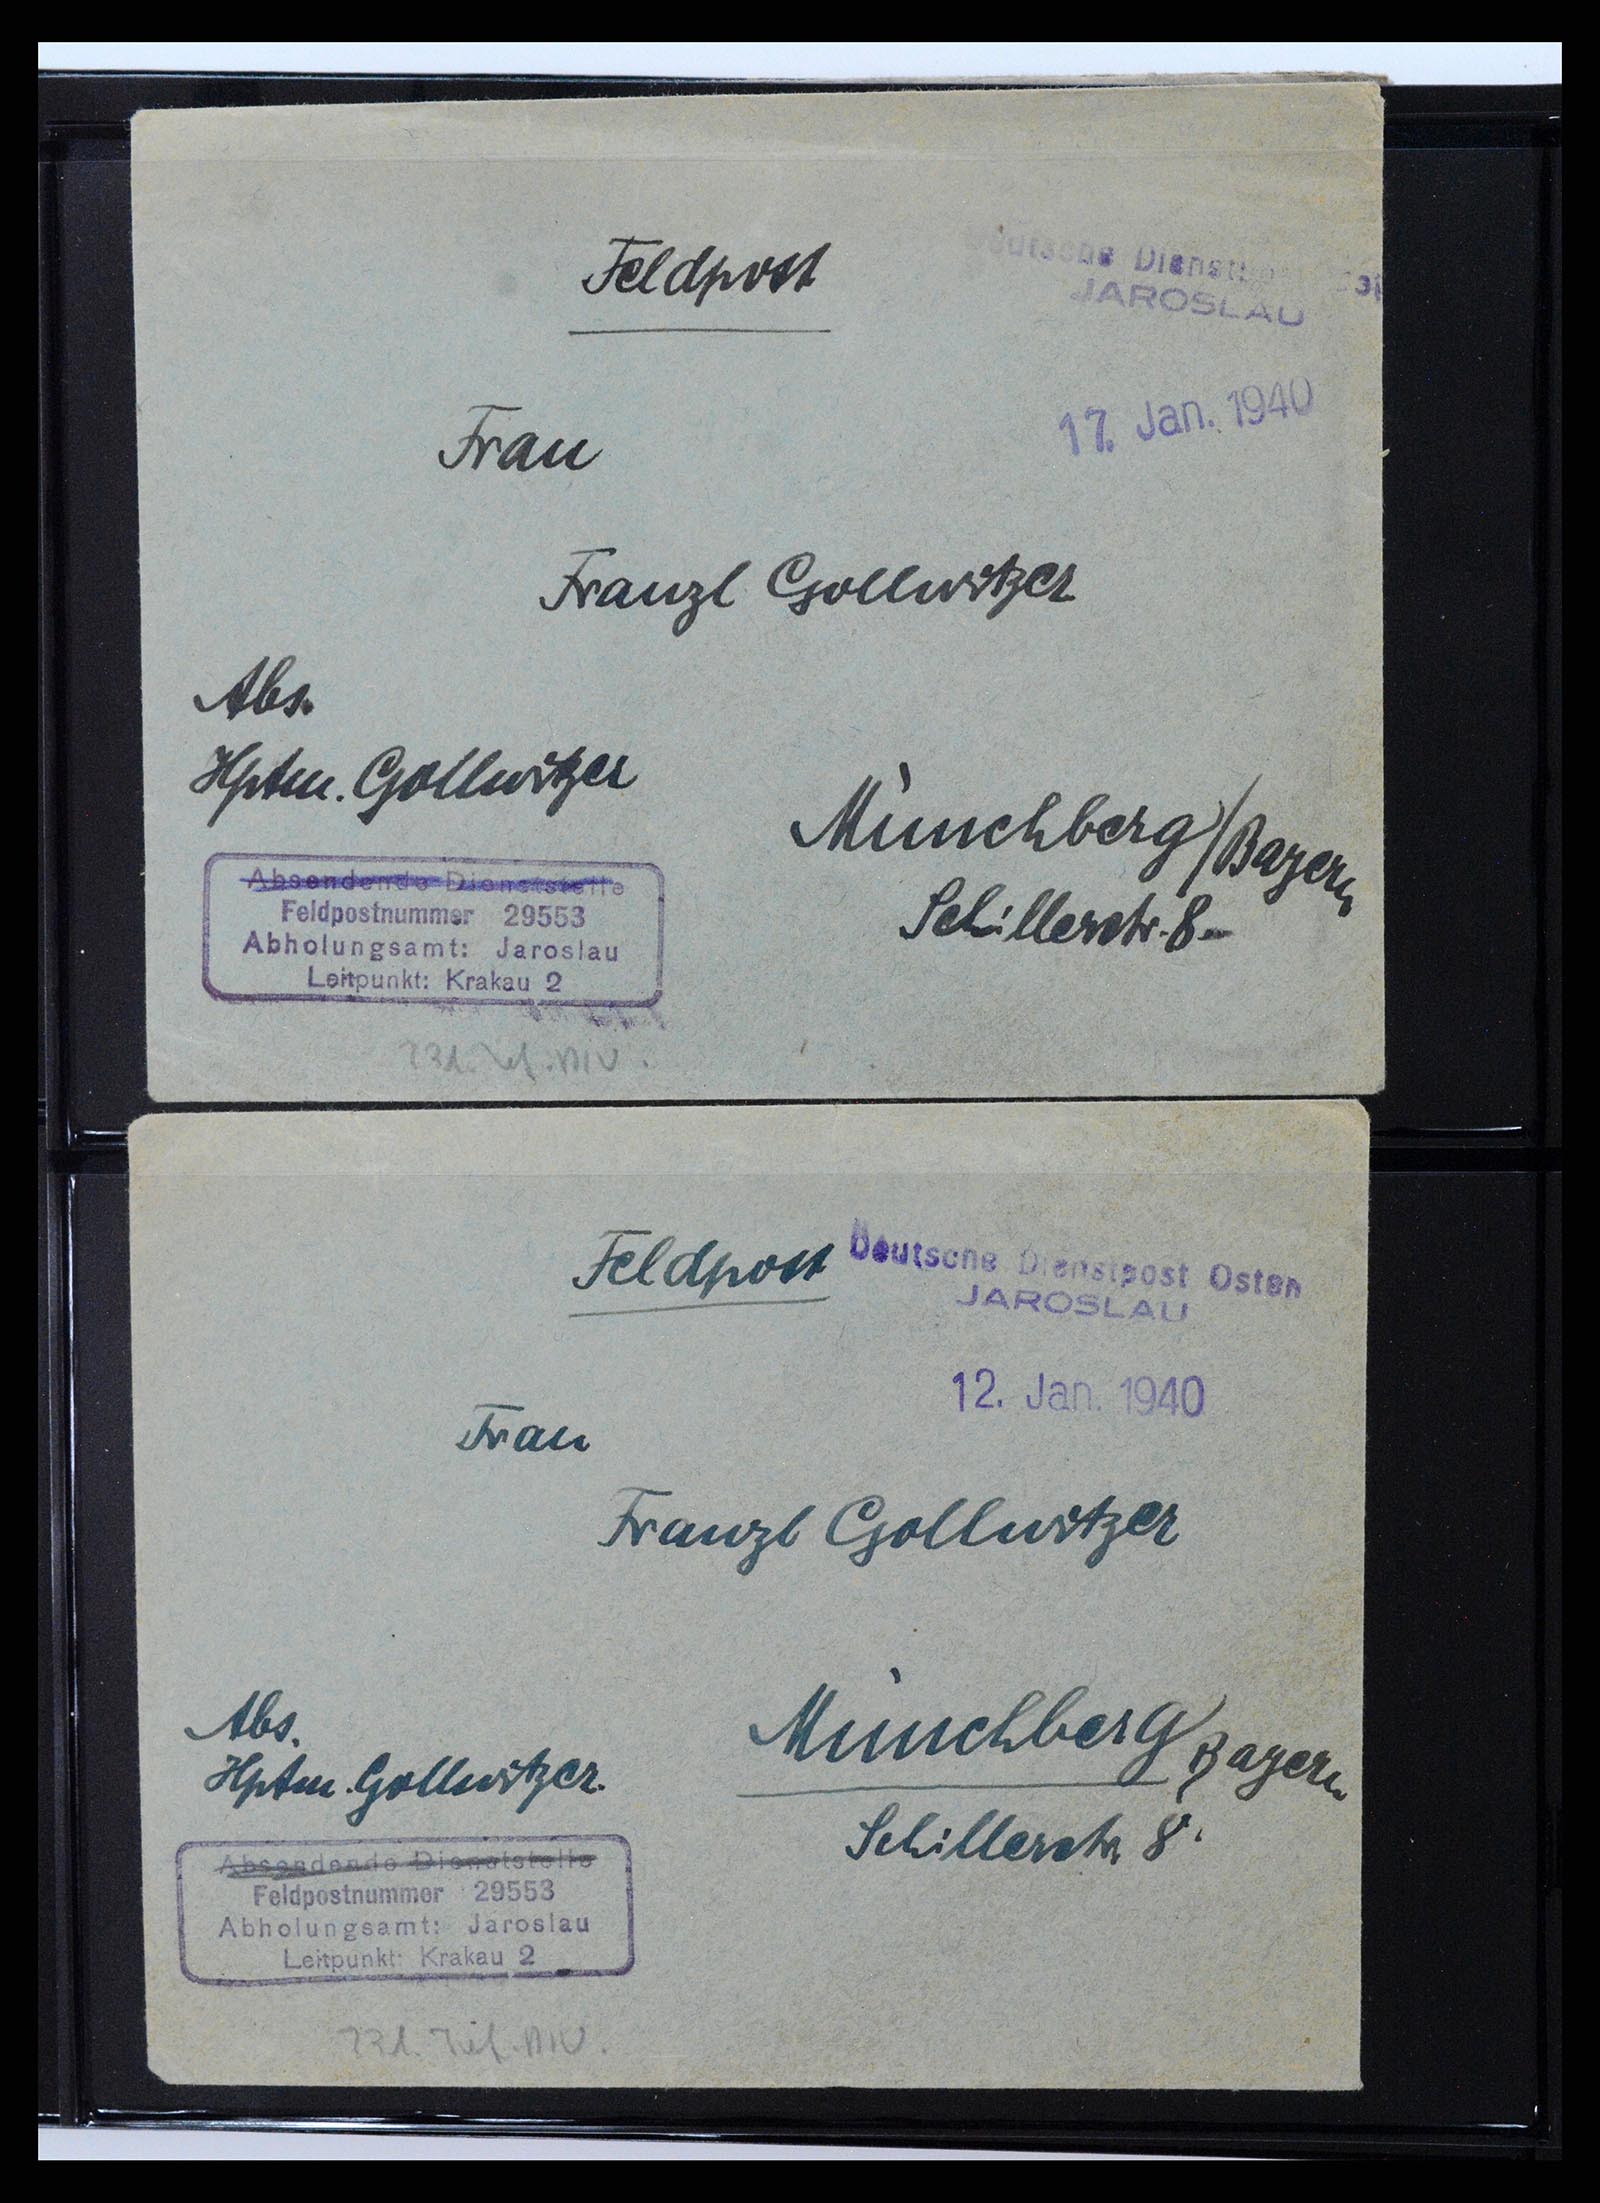 Feldpost
Deutsche Dienstpost
JAROSLAU
17. Jan. 1940
Frau
Franzl Gollwitzer
Abs.
Hptm. Gollwitzer
Münchberg/Bayern
Schillerstr. 8-
Absendende Dienststelle
Feldpostnummer 29553
Abholungsamt: Jaroslau
Leitpunkt: Krakau 2
Feldpost
Deutsche Dienstpost Osten
JAROSLAU
12. Jan. 1940
Frau
Franzl Gollwitzer
Abs.
Hptm. Gollwitzer.
Münchberg Bayern
Schillerstr. 8.
Absendende Dienststelle
Feldpostnummer 29553
Abholungsamt: Jaroslau
Leitpunkt: Krakau 2